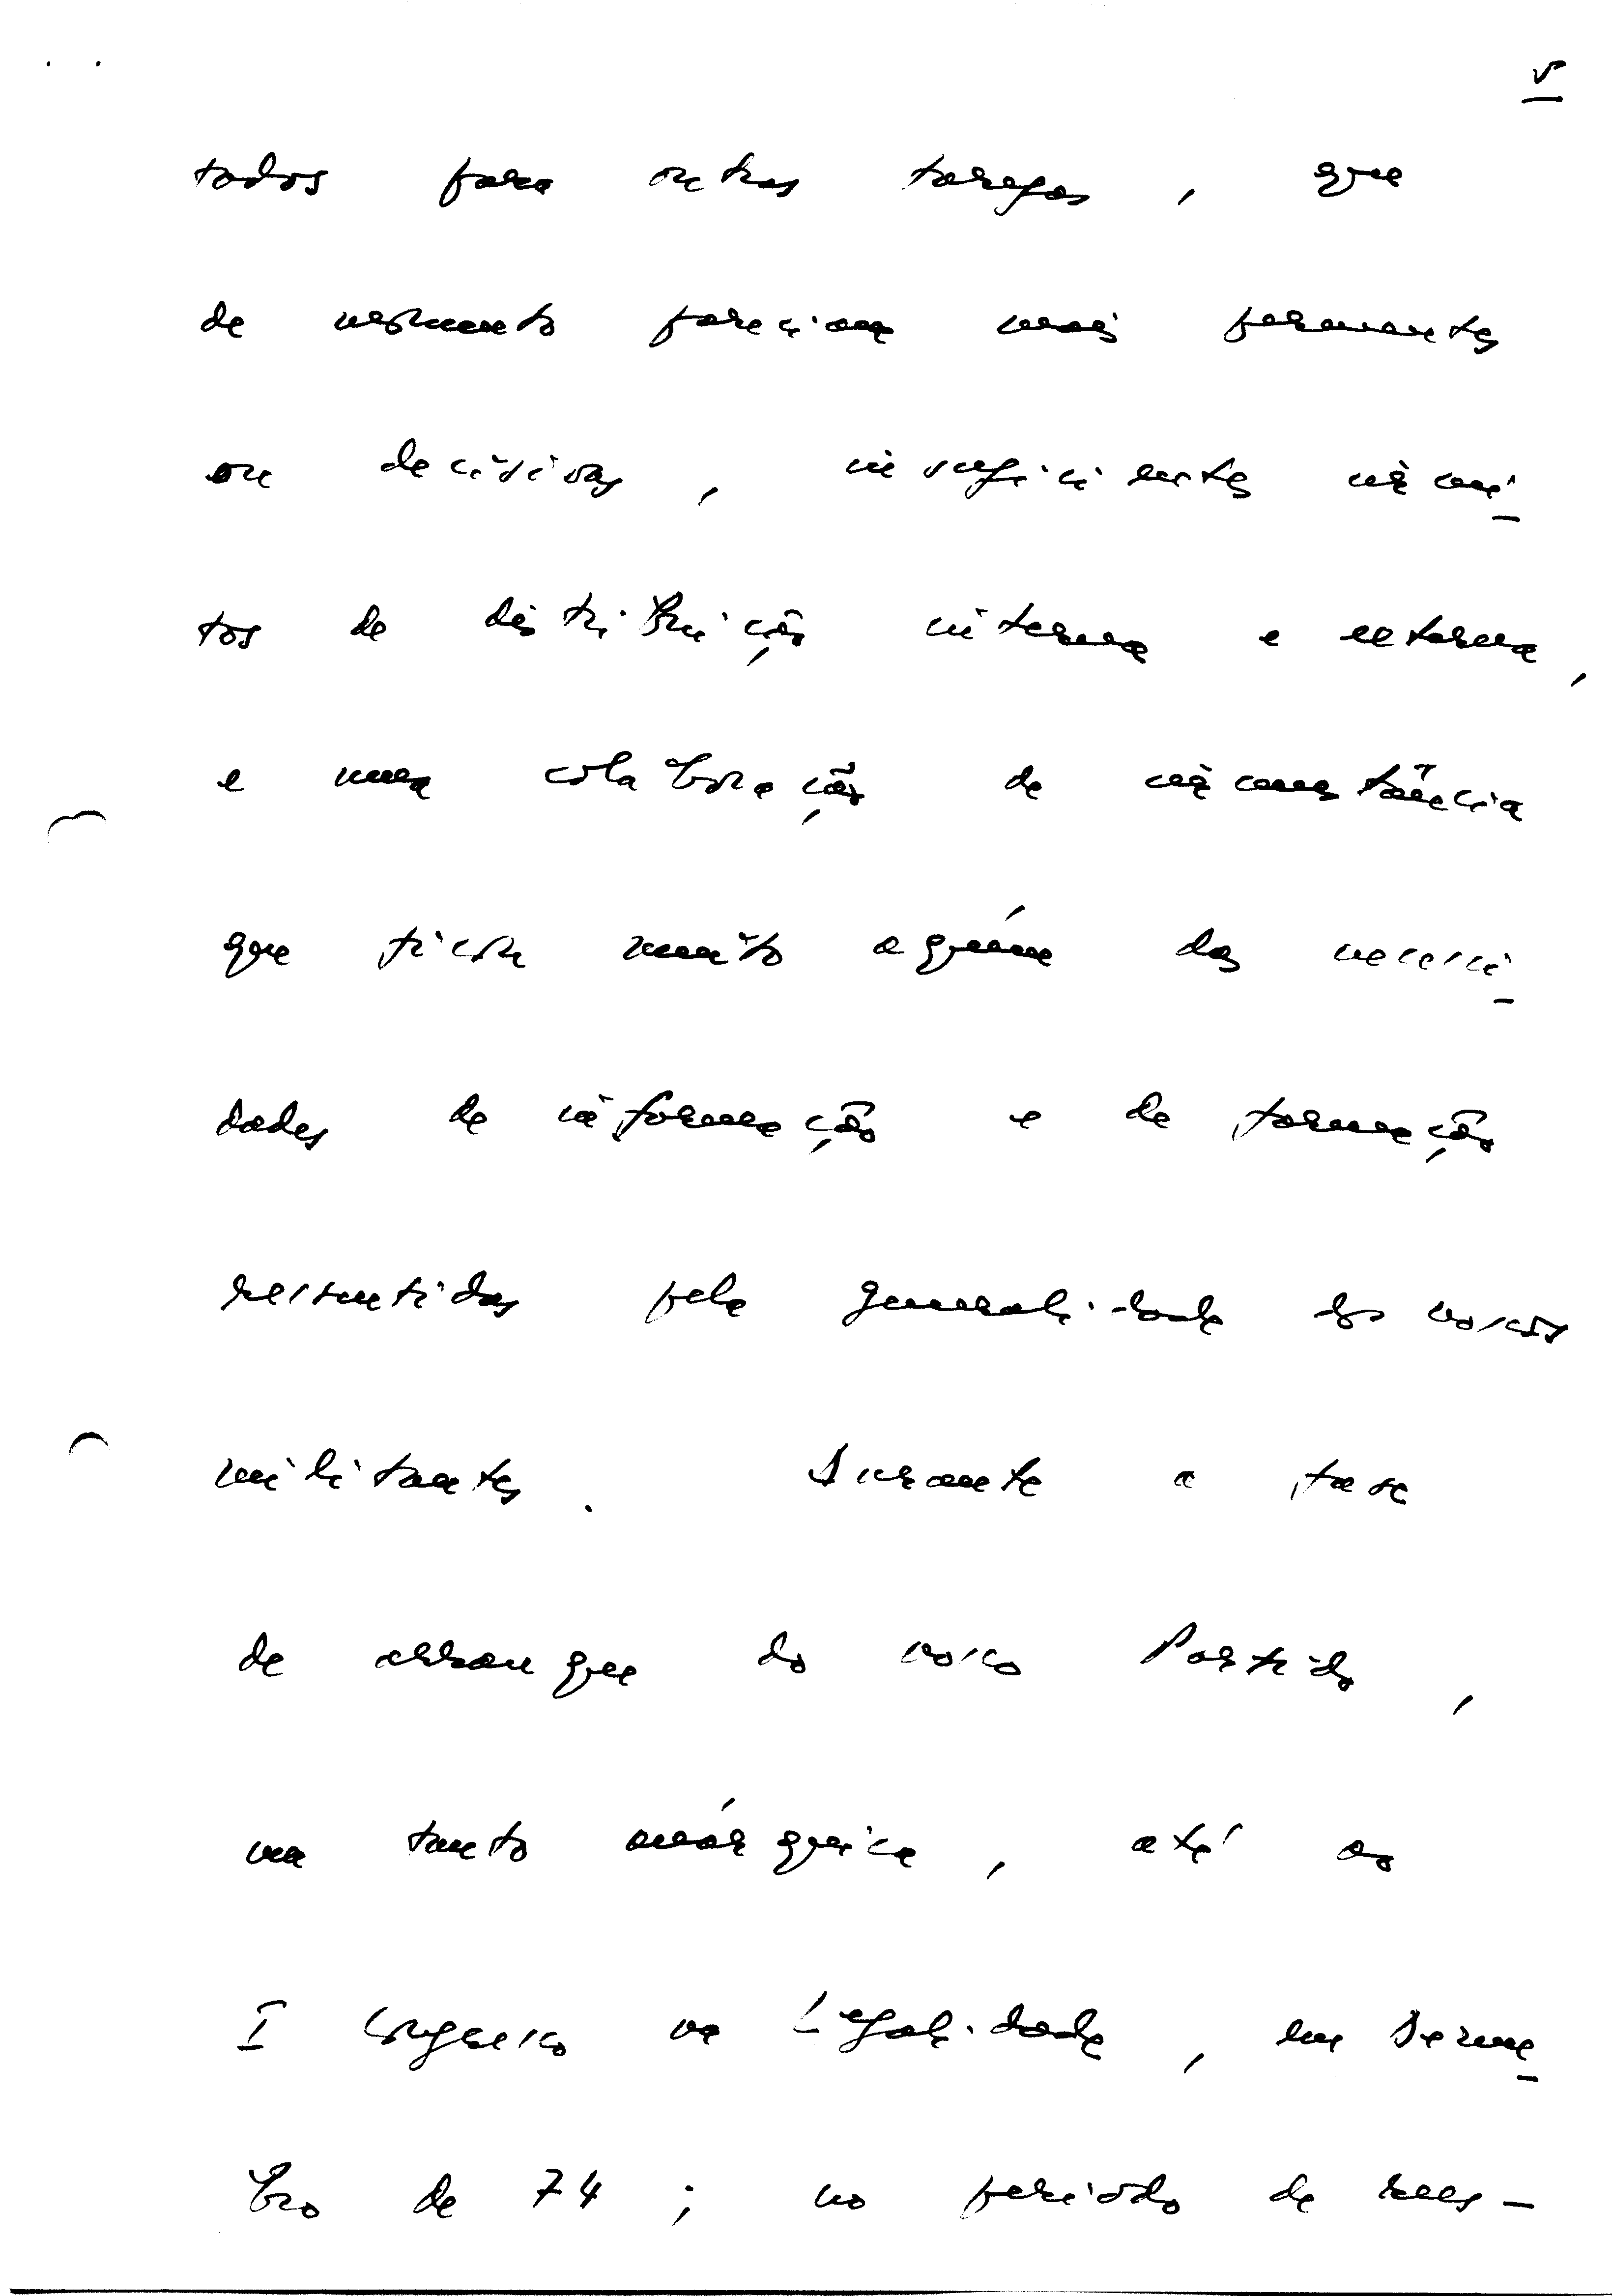 5
todos para outras tarefas, que
de momento pareciam mais prementes
ou decisivas, insuficientes circui
tos de distribuição interna e externa,
e uma colaboração de circunstância
que ficou muito aquém das necessi
dades de informação e de formação
ressentidas pela generalidade dos nossos
militantes. Durante a fase
de arranque do nosso Partido,
um tanto anárquica, até ao
I Congresso na Legalidade, em Dezem
bro de 74; no período de rees-